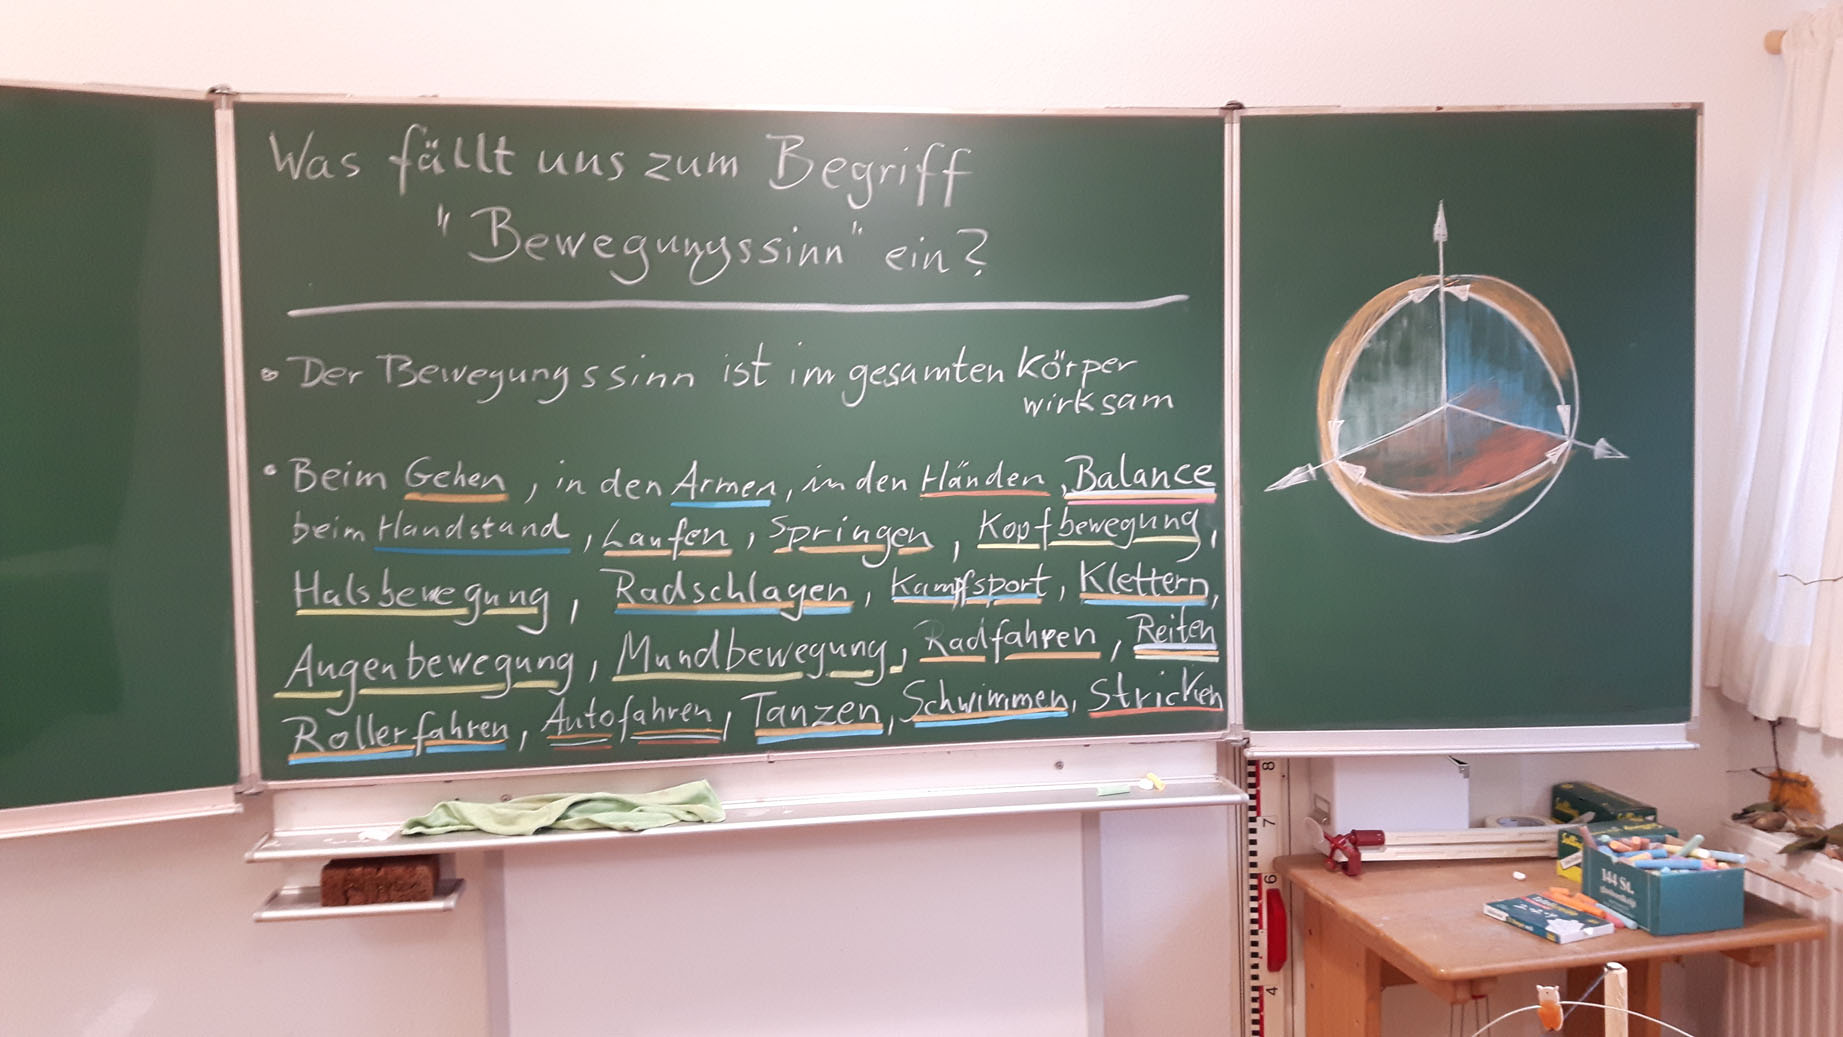 Was fällt uns zum Begriff
"Bewegungssinn" ein?
• Der Bewegungssinn ist im gesamten Körper
wirksam
• Beim Gehen, in den Armen, in den Händen, Balance
beim Handstand, Laufen, Springen, Kopfbewegung,
Halsbewegung, Radschlagen, Kampfsport, Klettern,
Augenbewegung, Mundbewegung, Radfahren, Reiten
Rollerfahren, Autofahren, Tanzen, Schwimmen, Stricken
8
7
6
4
144 St.